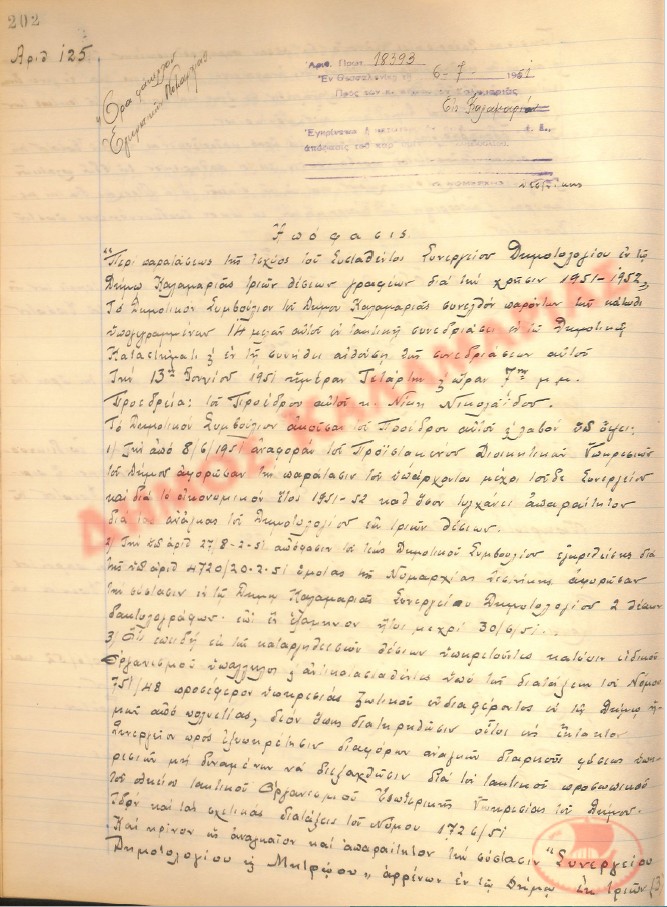 202
Αριθ 125
Αριθ. Πρωτ. 18393
Ἐν Θεσσαλονίκῃ τῇ 6-7- 1951
Πρὸς τὸν κ. Δήμαρχον Καλαμαριᾶς
Εἰς Καλαμαριάν
Ἐγκρίνεται ἡ
Ἀπόφασις
"Περὶ παρατάσεως τῆς ἰσχύος τοῦ συσταθέντος Συνεργείου Δημοτολογίου ἐν τῷ
Δήμῳ Καλαμαριᾶς τριῶν θέσεων γραφέων διὰ τὴν χρῆσιν 1951-1952„
Τὸ Δημοτικὸν Συμβούλιον τοῦ Δήμου Καλαμαριᾶς συνελθὸν παρόντων τῶν κάτωθι
ὑπογεγραμμένων 14 μελῶν αὐτοῦ εἰς τακτικὴν συνεδρίασιν ἐν τῷ Δημοτικῷ
Καταστήματι & ἐν τῇ συνήθει αἰθούσῃ τῶν συνεδριάσεων αὐτοῦ
Τὴν 13ην Ἰουνίου 1951 ἡμέραν Τετάρτην & ὥραν 7ην μ.μ.
Προεδρείᾳ: τοῦ Προέδρου αὐτοῦ κ. Νίκη Νικολαΐδου.
Τὸ Δημοτικὸν Συμβούλιον ἀκοῦσαν τοῦ Προέδρου αὐτοῦ & λαβὸν ὑπ' ὄψει:
1) Τὴν ἀπὸ 8/6/1951 ἀναφορὰν τοῦ Προϊσταμένου Διοικητικῶν Ὑπηρεσιῶν
τοῦ Δήμου ἀφορῶσαν τὴν παράτασιν τοῦ ὑπάρχοντος μέχρι τοῦδε Συνεργείου
καὶ διὰ τὸ οἰκονομικὸν ἔτος 1951-52 καθ' ὅσον τυγχάνει ἀπαραίτητον
διὰ τὰς ἀνάγκας τοῦ Δημοτολογίου ἐκ τριῶν θέσεων.
2) Τὴν ὑπ' ἀριθ 27/8-2-51 ἀπόφασιν τοῦ τέως Δημοτικοῦ Συμβουλίου ἐγκριθεῖσαν διὰ
τῆς ὑπ' ἀριθ 4720/20-2-51 ὁμοίας τῆς Νομαρχίας Θεσ/νίκης ἀφορῶσαν
τὴν σύστασιν ἐν τῷ Δήμῳ Καλαμαριᾶς Συνεργείου Δημοτολογίου 2 θέσεων
δακτυλογράφων ἐπὶ ἓν ἑξάμηνον ἤτοι μέχρι 30/6/51.
3) Ὅτι ἐπειδὴ ἐκ τῶν καταργηθεισῶν θέσεων ὑπηρετοῦντες κατόπιν εἰδικοῦ
Ὀργανισμοῦ ὑπάλληλοι & ἀντικατασταθέντες ὑπὸ τῶν διατάξεων τοῦ Νόμου
751/48 προσέφερον ὑπηρεσίας ζωτικοῦ ἐνδιαφέροντος εἰς τὸν Δῆμον
ἀπὸ πολυετίας, δέον ὅπως διατηρηθῶσιν οὗτοι ὡς ἔκτακτον
Συνεργεῖον πρὸς ἐξυπηρέτησιν διαφόρων ἀναγκῶν διαρκοῦς φύσεως ὑπη-
ρεσιῶν μὴ δυναμένων νὰ διεξαχθῶσιν διὰ τοῦ τακτικοῦ προσωπικοῦ
τοῦ οἰκείου τακτικοῦ Ὀργανισμοῦ Ἐσωτερικῆς Ὑπηρεσίας τοῦ Δήμου.
Ἰδὸν καὶ τὰς σχετικὰς διατάξεις τοῦ Νόμου 1726/51
Καὶ κρῖνον ὡς ἀναγκαῖον καὶ ἀπαραίτητον τὴν σύστασιν "Συνεργείου
Δημοτολογίου & Μητρώου„ ἀρρένων ἐν τῷ Δήμῳ ἐκ τριῶν (3)